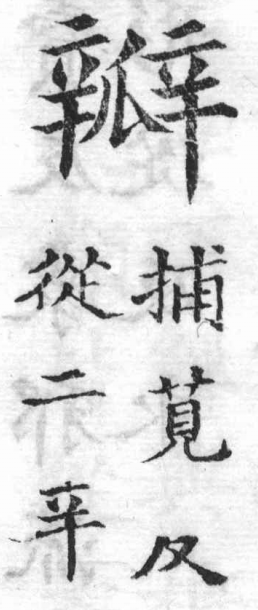 瓣
捕莧反
從二辛